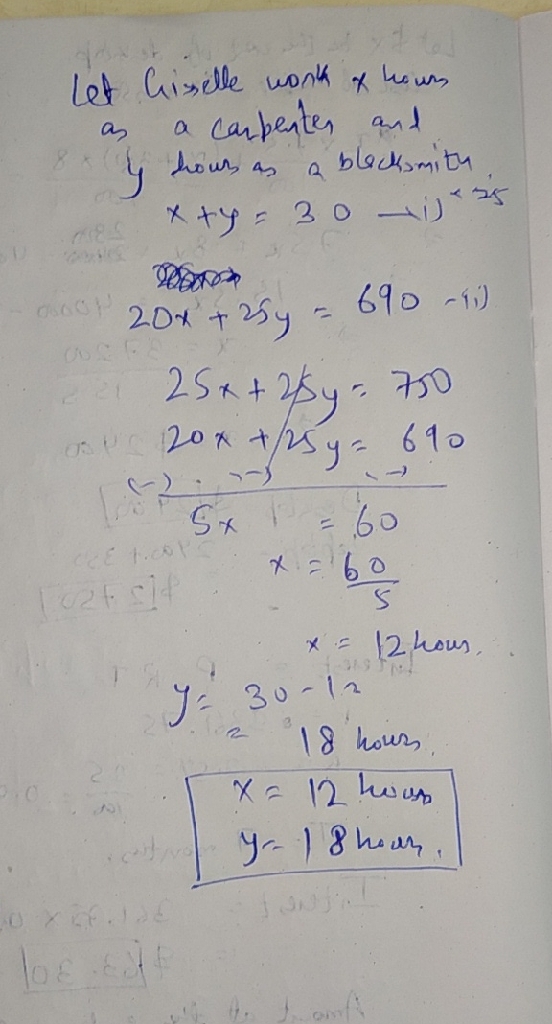 Let Gisselle work x hours
as a carpenter and
y hours as a blacksmith
x + y = 30 —i) × 25
20x + 25y = 690 -ii)
25x + 25y = 750
20x + 25y = 690
(-) (-) (-)
5x = 60
x = 60/5
x = 12 hour.
y = 30 - 12
= 18 hours
x = 12 hours
y = 18 hours.